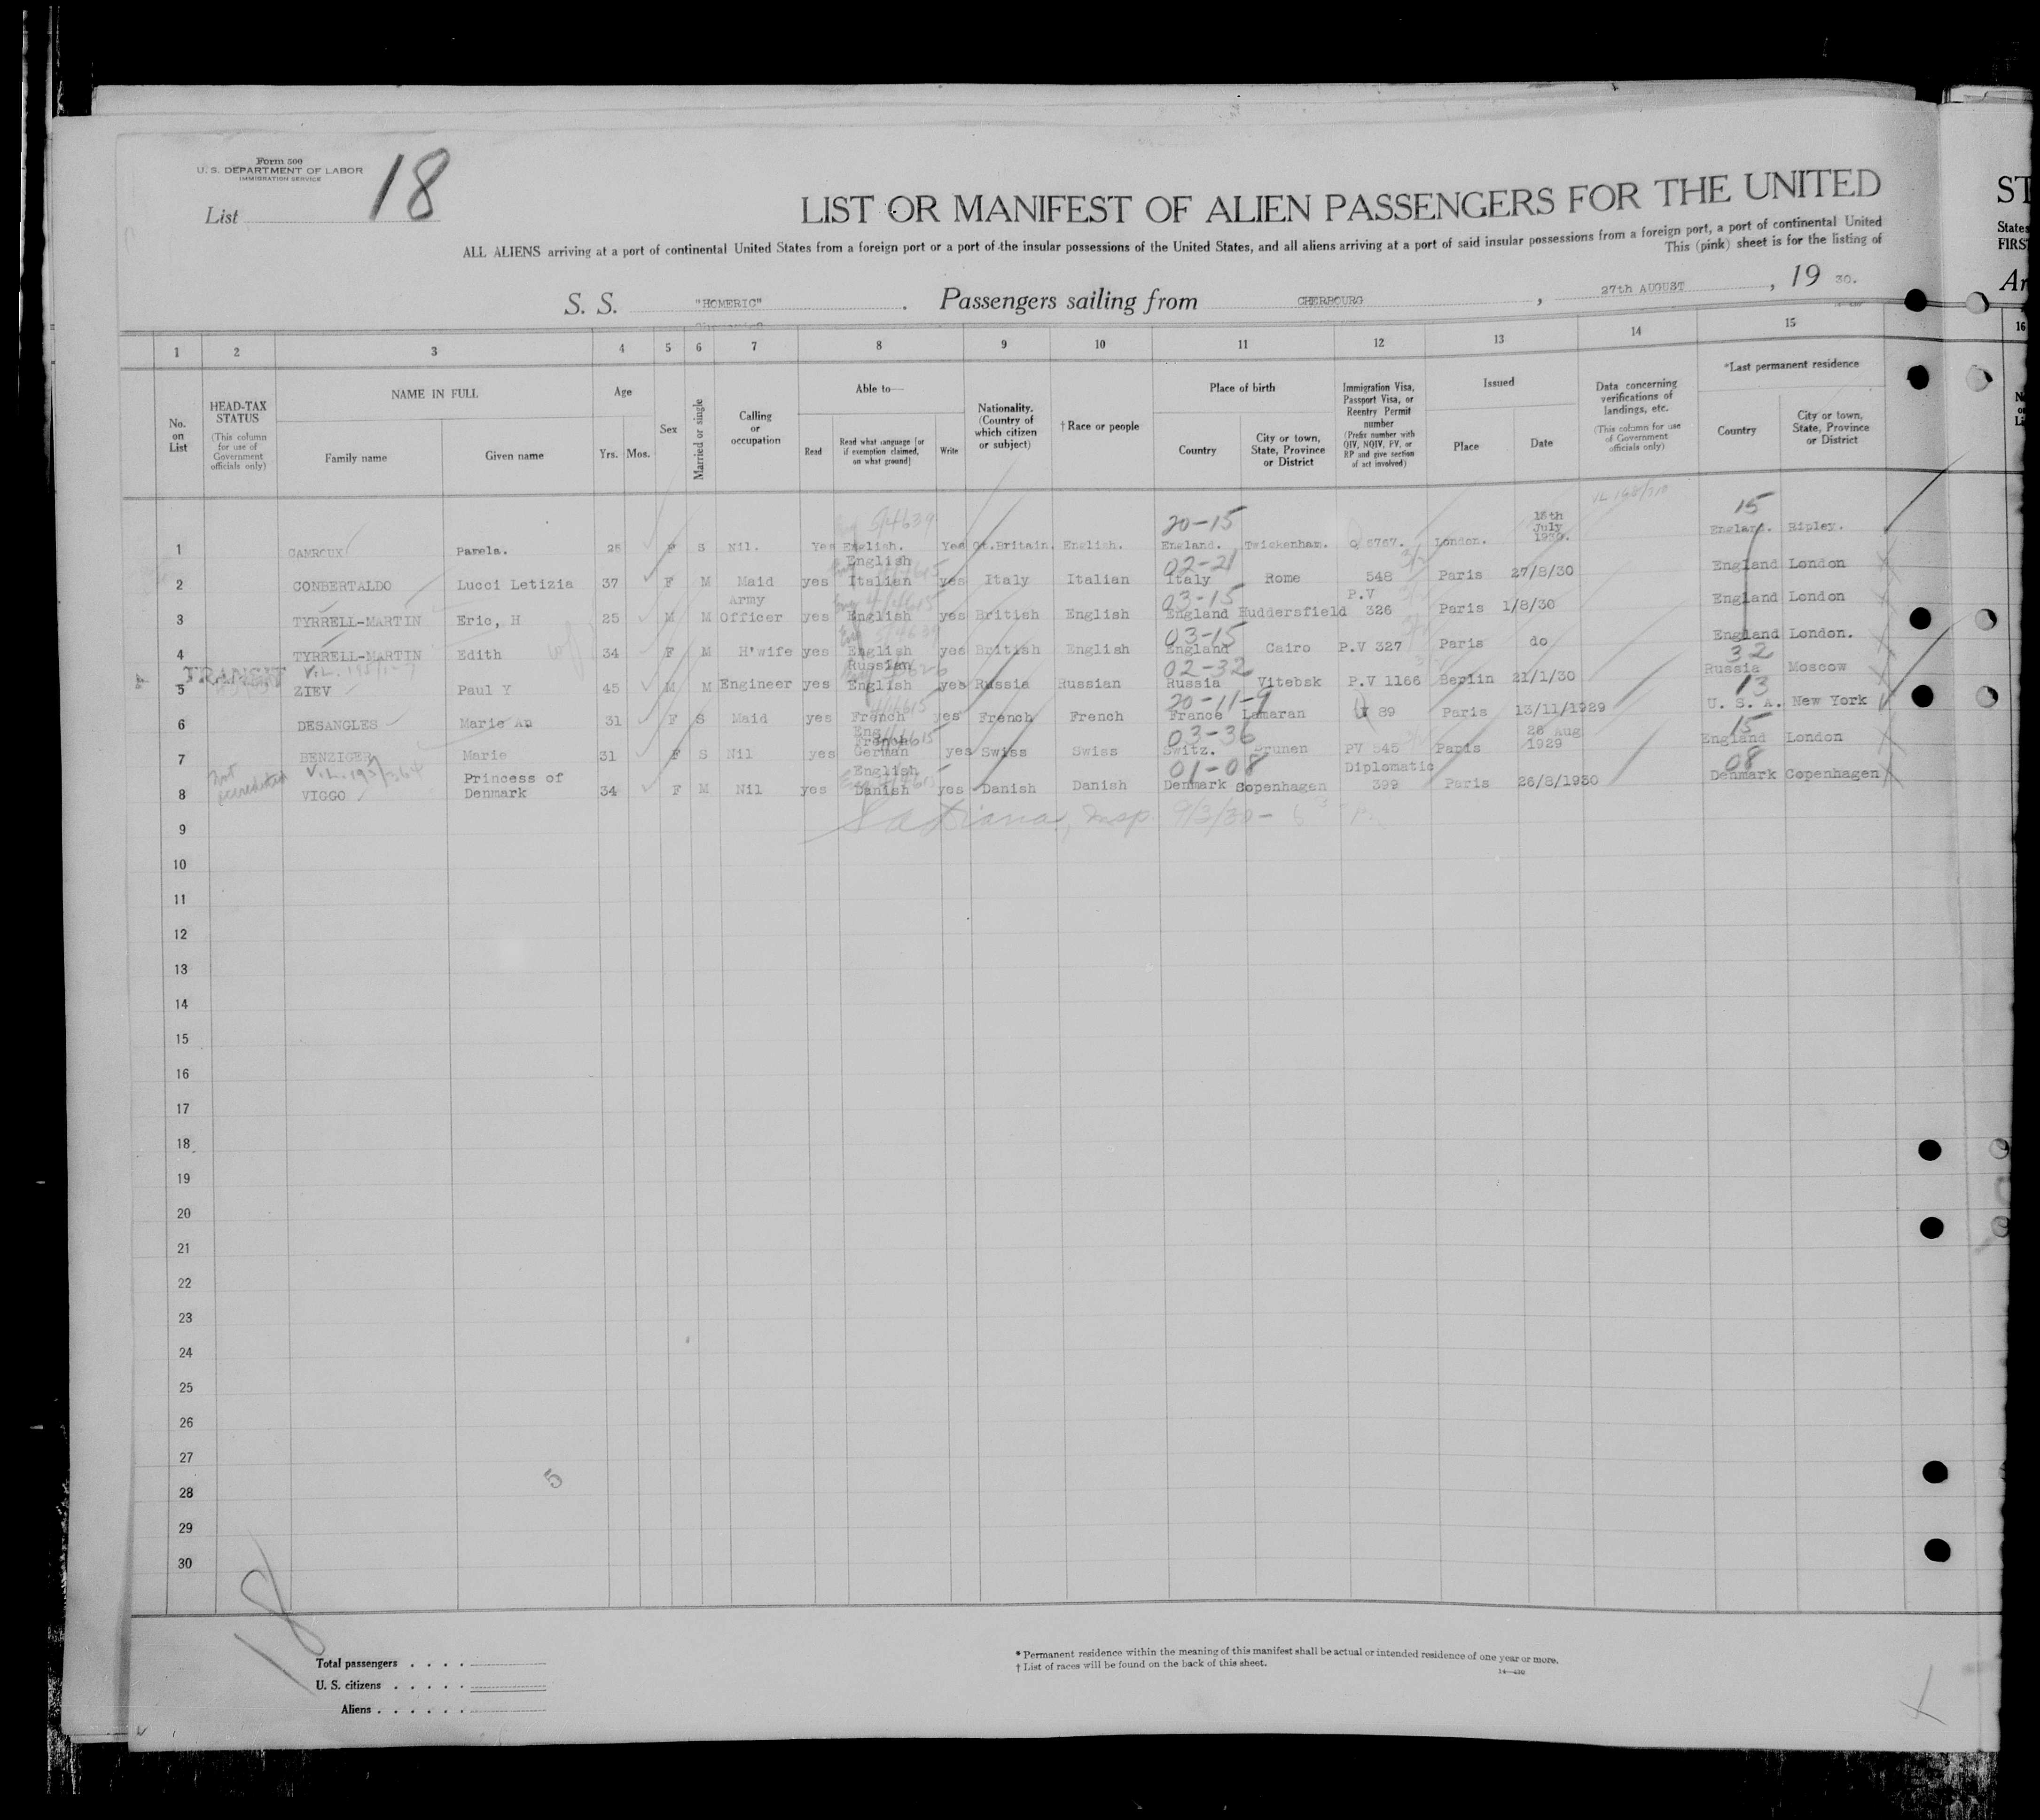 Form 500
U. S. DEPARTMENT OF LABOR
IMMIGRATION SERVICE
List 18
LIST OR MANIFEST OF ALIEN PASSENGERS FOR THE UNITED
ST
ALL ALIENS arriving at a port of continental United States from a foreign port or a port of the insular possessions of the United States, and all aliens arriving at a port of said insular possessions from a foreign port, a port of continental United
States
This (pink) sheet is for the listing of
FIRST
S. S. "HOMERIC". Passengers sailing from CHERBOURG, 27th AUGUST, 19 30.
Ar
1 2 3 4 5 6 7 8 9 10 11 12 13 14 15 16
No. on List
HEAD-TAX STATUS (This column for use of Government officials only)
NAME IN FULL
Family name
Given name
Age
Yrs. Mos.
Sex
Married or single
Calling or occupation
Able to—
Read
Read what language [or if exemption claimed, on what ground]
Write
Nationality. (Country of which citizen or subject)
† Race or people
Place of birth
Country
City or town, State, Province or District
Immigration Visa, Passport Visa, or Reentry Permit number (Prefix number with QIV, NQIV, PV, or RP and give section of act involved)
Issued
Place
Date
Data concerning verifications of landings, etc. (This column for use of Government officials only)
*Last permanent residence
Country
City or town, State, Province or District
20-15 15
1 CAMROUX Pamela. 25 F S Nil. Yes English. Yes Gt.Britain. English. England. Twickenham. London. July 1930. England. Ripley.
02-21
2 CONBERTALDO Lucci Letizia 37 F M Maid yes English Italian yes Italy Italian Italy Rome 548 Paris 27/8/30 England London
03-15
3 TYRRELL-MARTIN Eric, H 25 M M Army Officer yes English yes British English England Huddersfield P.V 326 Paris 1/8/30 England London
03-15
4 TYRRELL-MARTIN Edith 34 F M H'wife yes English yes British English England Cairo P.V 327 Paris do England London.
TRANSIT 02-32 32
5 ZIEV Paul Y 45 M M Engineer yes Russian English yes Russia Russian Russia Vitebsk P.V 1166 Berlin 21/1/30 Russia Moscow
20-11-9 13
6 DESANGLES Marie An 31 F S Maid yes French yes French French France Lamaran 89 Paris 13/11/1929 U. S. A. New York
03-36 15
7 BENZIGER Marie 31 F S Nil yes Eng French German yes Swiss Swiss Switz. Brunen PV 545 Paris 28 Aug 1929 England London
Not accredited 01-08 08
8 VIGGO Princess of Denmark 34 F M Nil yes English Danish yes Danish Danish Denmark Copenhagen Diplomatic 399 Paris 26/8/1930 Denmark Copenhagen
Insp. 9/3/30
9
10
11
12
13
14
15
16
17
18
19
20
21
22
23
24
25
26
27
28
29
30
5
18
Total passengers . . . .
U. S. citizens . . . . .
Aliens . . . . . .
* Permanent residence within the meaning of this manifest shall be actual or intended residence of one year or more.
† List of races will be found on the back of this sheet.